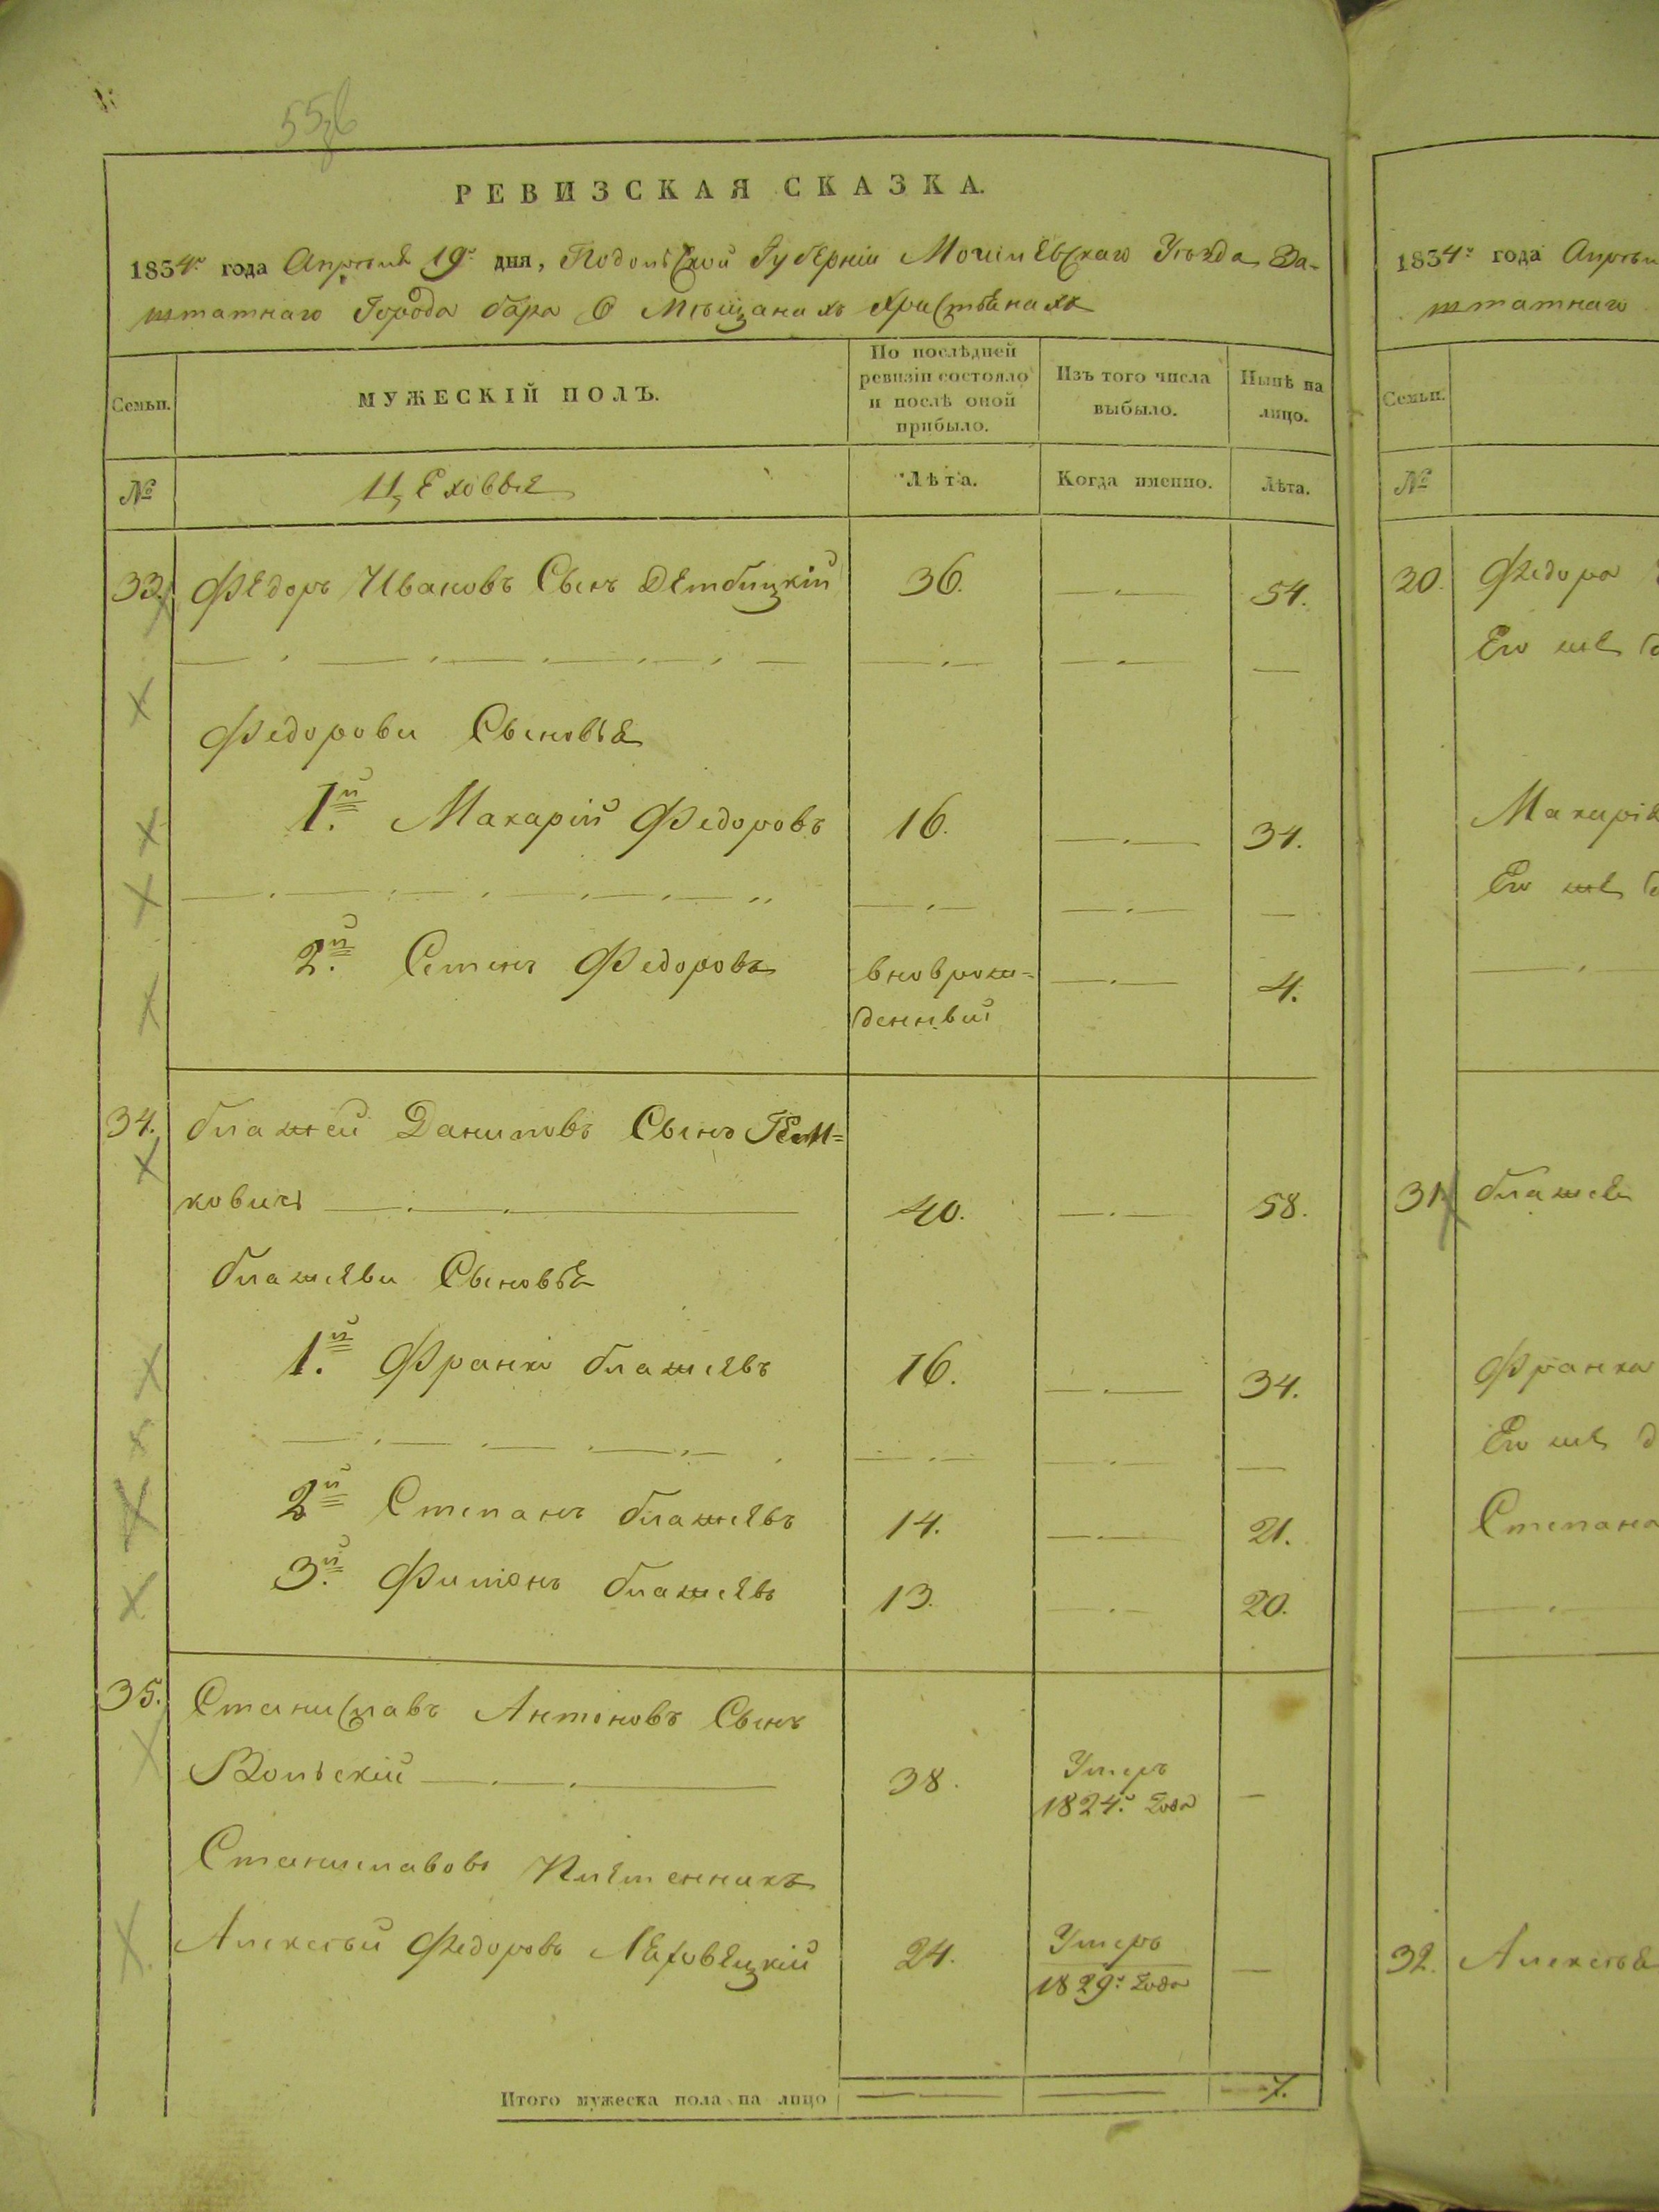 РЕВИЗСКАЯ СКАЗКА.
1834го года Апреля 19го дня, Подольской Губерніи Могилевскаго Уезда За-
штатнаго Города бара О Мѣщанахъ Христіянахъ
Семьи.
МУЖЕСКІЙ ПОЛЪ.
По послѣдней ревизіи состояло и послѣ оной прибыло.
Изъ того числа выбыло.
Нынѣ на лицо.
№
Цеховые
Лѣта.
Когда именно.
Лѣта.
33. Федоръ Ивановъ Сынъ Дембицкій 36. 54.
Федорови Сыновья
1й Макарій Федоровъ 16. 34.
2й Семенъ Федоровъ вноврож= 4.
денный
34. блажей Даниловъ Сынъ
ковичъ 40. 58.
блажеви Сыновья
1й Франко блажевъ 16. 34.
2й Степанъ блажевъ 14. 21.
3й блажевъ 13. 20.
35. Станиславъ Антоновъ Сынъ
Вольскій 38. Умеръ
1824го года
Станиславовъ Племенникъ
Алексѣй Федоровъ 24. Умеръ
1829го года
Итого мужеска пола на лицо 7.
1834го года Апрел
штатнаго
Семьи.
№
30. Федора
Его же
Макарія
Его же
31. блажея
Франка
Его же
Степана
32. Алексѣя